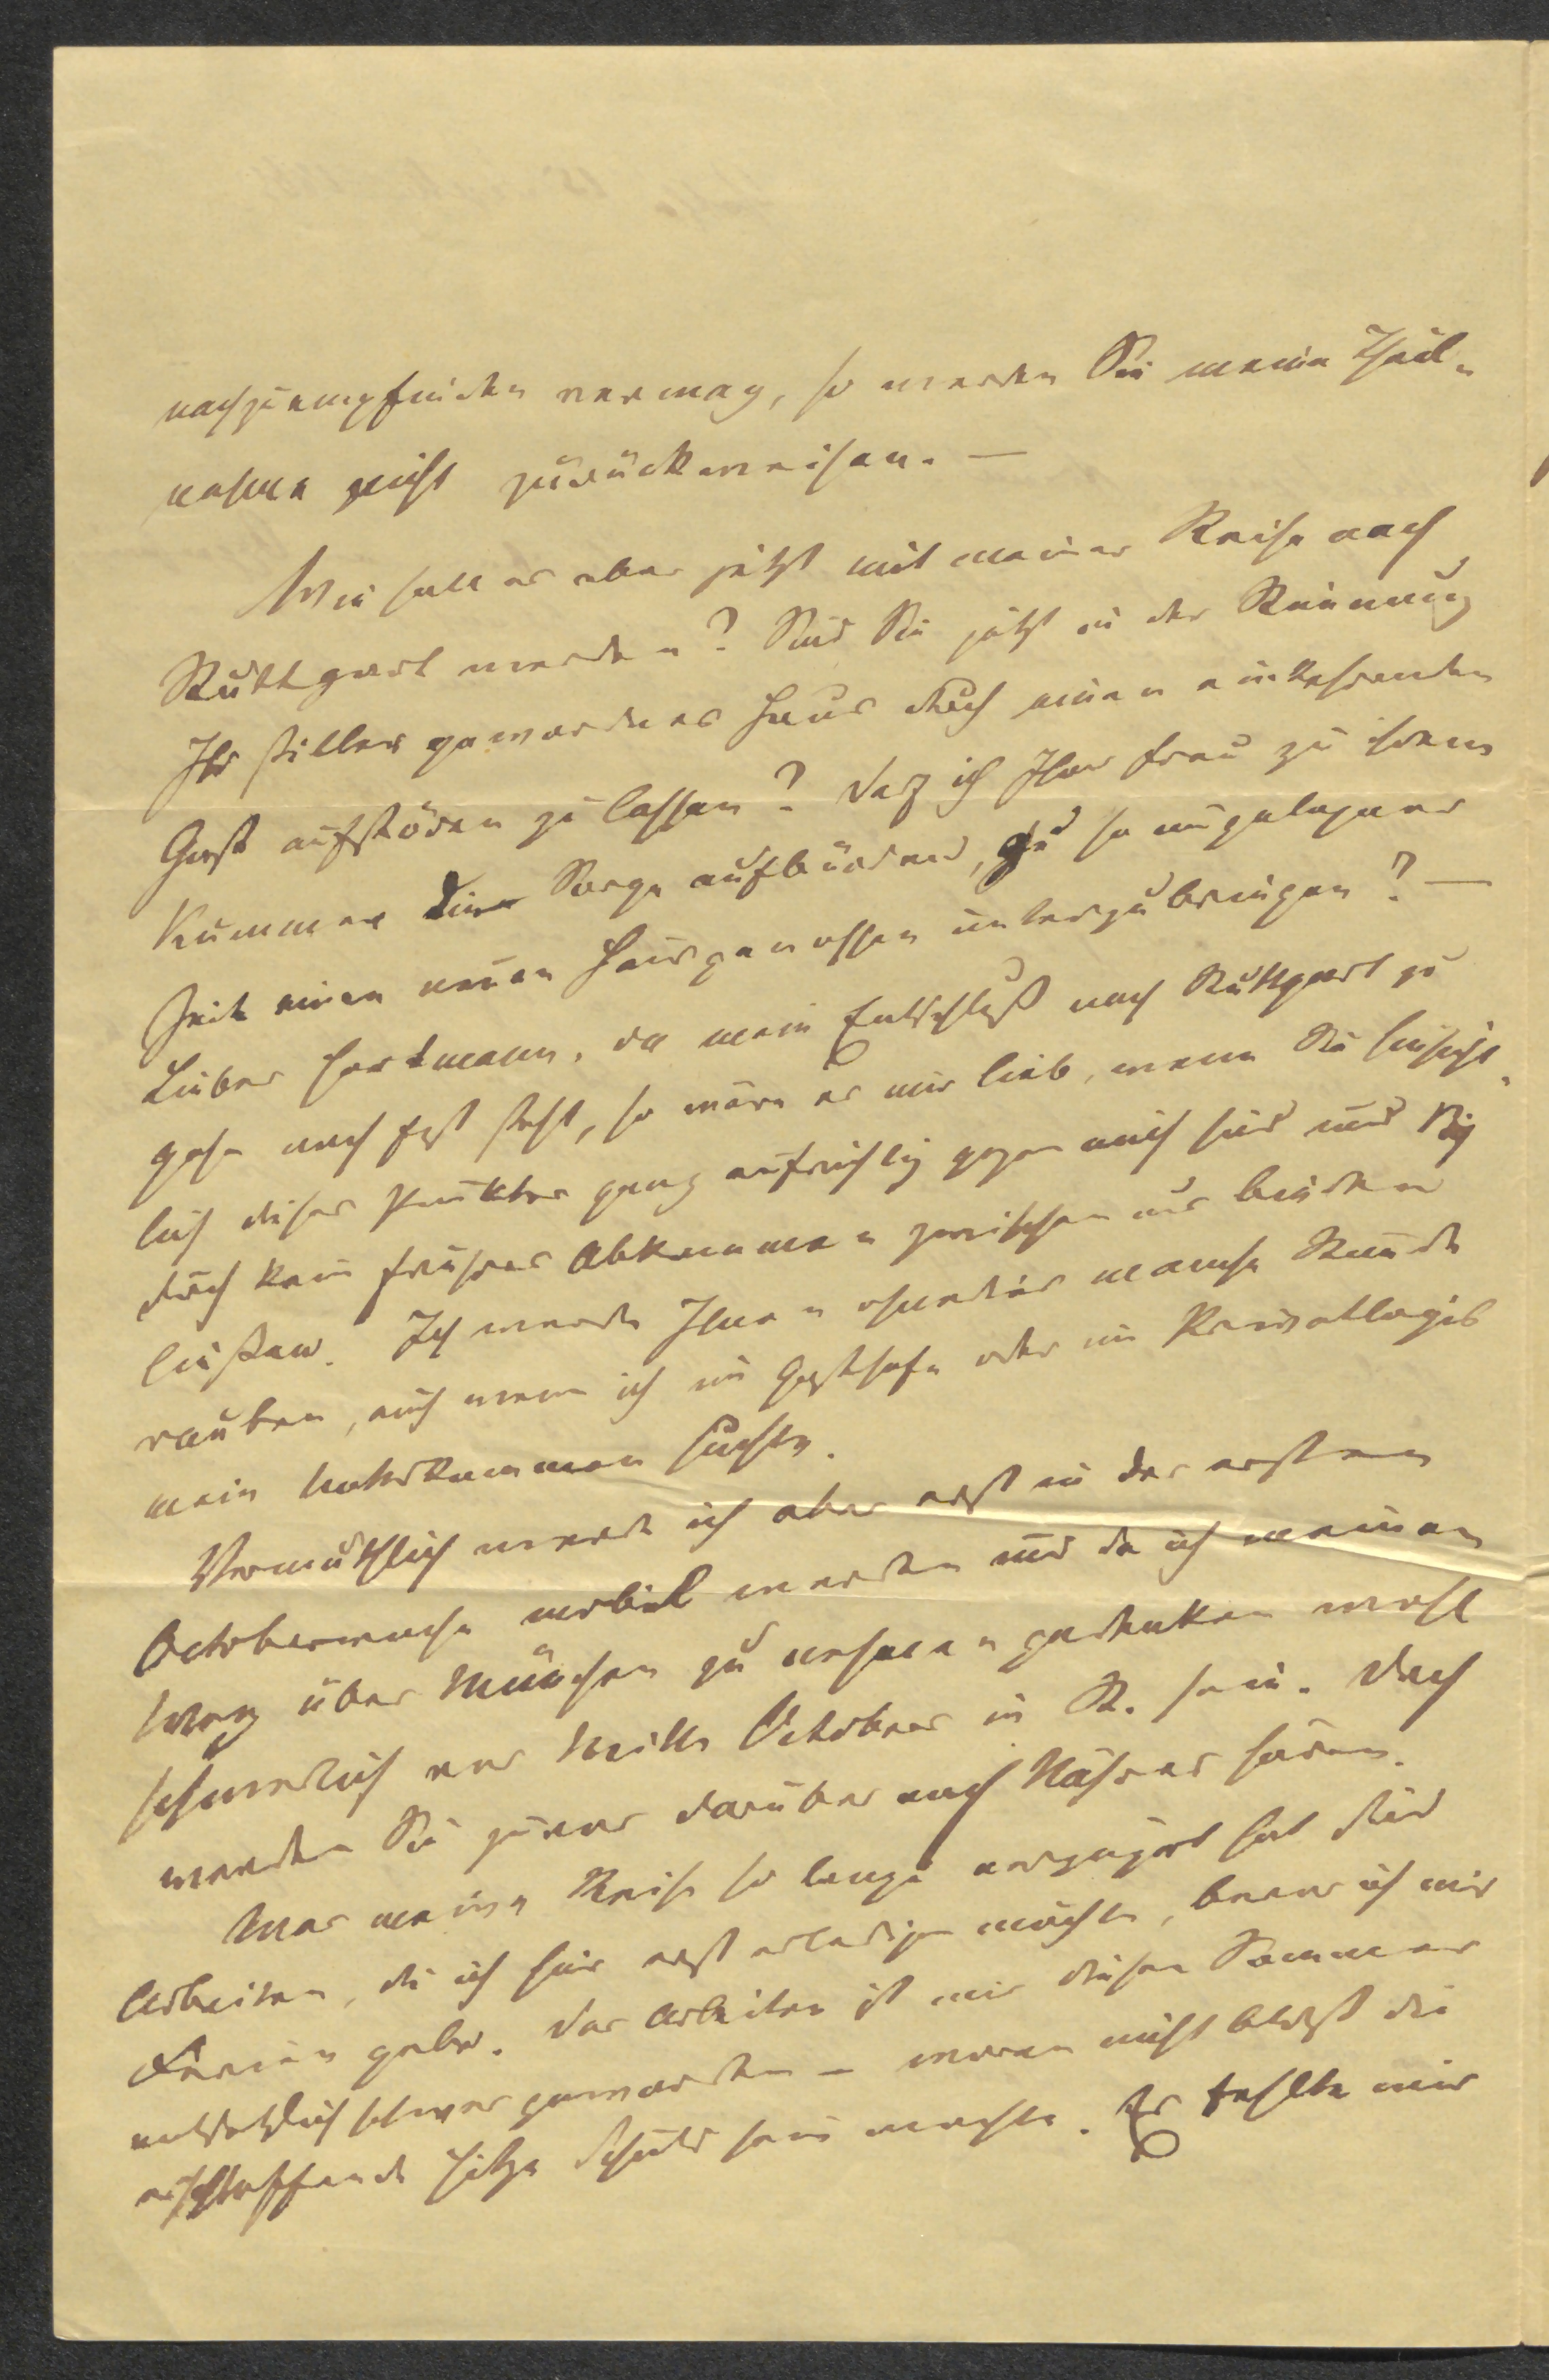 nachzuempfinden vermag, so werden Sie meine Theil-
nahme nicht zurückweisen. —
Wie soll es aber jetzt mit meiner Reise nach
Stuttgart werden? Sind Sie jetzt in der Stimmung
Ihr stiller gewordenes Haus durch einen einkehrenden
Gast aufstören zu lassen? Darf ich Ihrer Frau zu ihrem
Kummer die Sorge aufbürden, zu so ungelegener
Zeit einen neuen Hausgenossen unterzubringen? —
Lieber Hartmann, da mein Entschluß nach Stuttgart zu
gehen noch fest steht, so wäre es mir lieb, wenn Sie hinsicht-
lich dieses Punktes ganz aufrichtig gegen mich sind und sich
durch kein früheres Abkommen zwischen uns binden
ließen. Ich werde Ihnen ohnedies manche Stunde
rauben, auch wenn ich im Gasthofe oder im Privatlogis
mein Unterkommen suchte.
Vermuthlich werde ich aber erst in der ersten
Octoberwoche mobil werden und da ich meinen
Weg über München zu nehmen gedenke wohl
schwerlich vor Mitte October in St. sein. Doch
werden Sie zuvor darüber noch Näheres hören.
Was meine Reise so lange verzögert hat sind
Arbeiten, die ich hier erst erledigen möchte, bevor ich mir
Ferien gebe. Das Arbeiten ist mir diesen Sommer
entsetzlich schwer geworden – woran nicht bloß die
erschlaffende Hitze Schuld sein mochte. Es fehlte mir